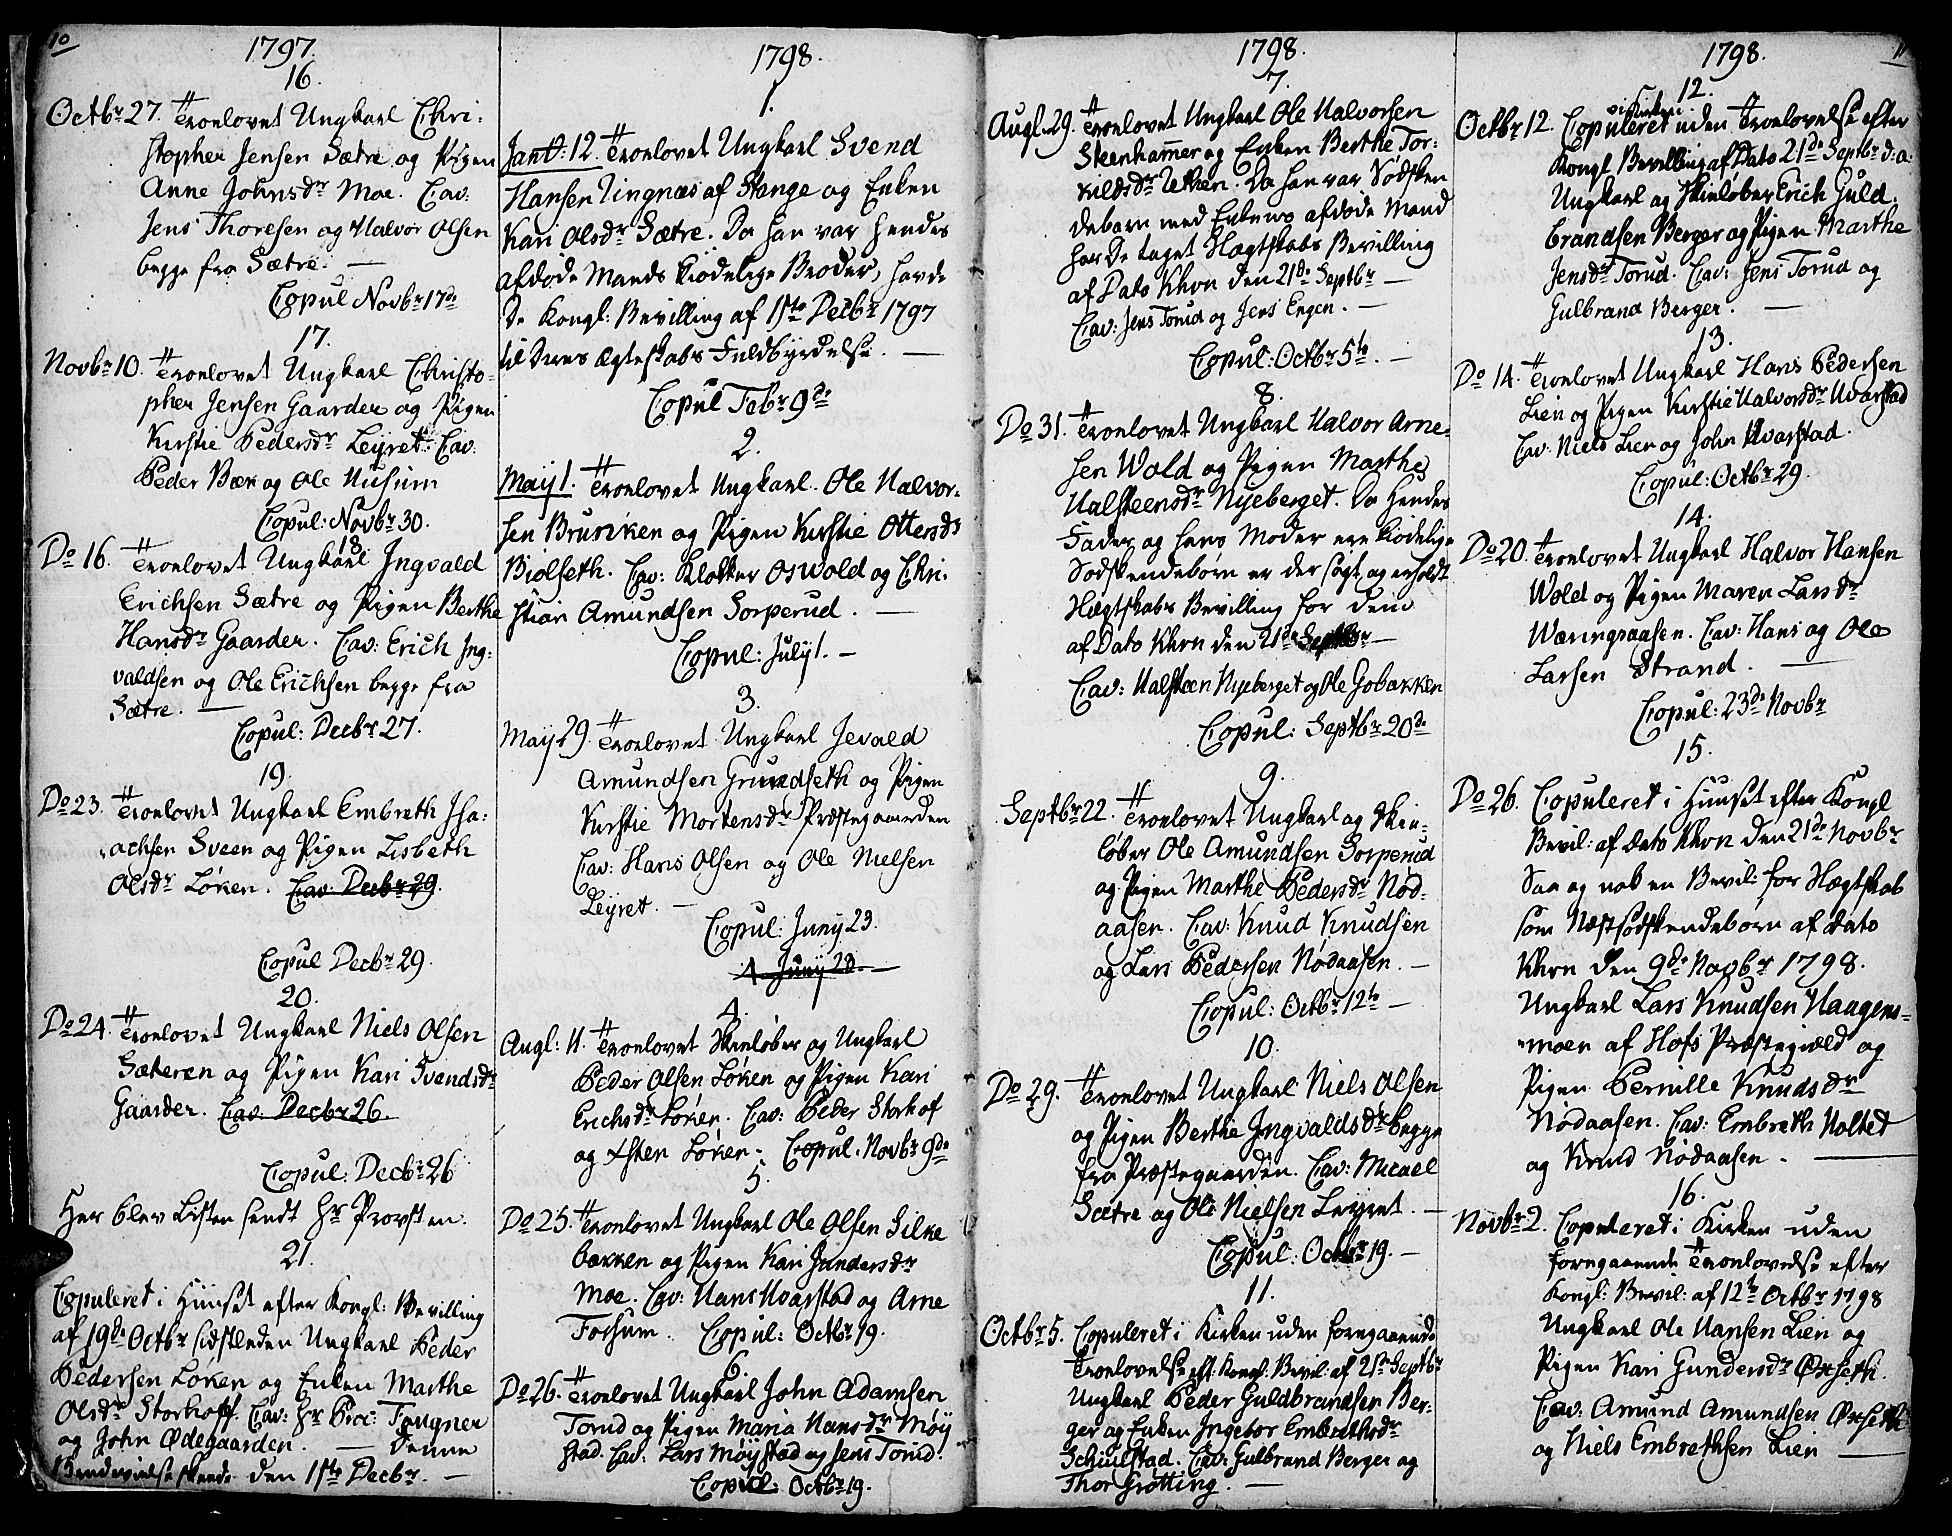 10
1797.
16.
Octbr 27. Troelovet Ungkarl Chri:
stopher Jensen Sætre og Pigen
Anne Johnsdr Moe. Cav:
Jens Thoresen og Halvor Olsen
begge fra Sætre. —
Copul Novbr 17de
17.
Novbr 10. Troelovet Ungkarl Christo-
pher Jensen Gaarder og Pigen
Kirstie Pedersdr Leyret. Cav:
Peder Bæk og Ole Husum
Copul: Novbr 30.
18
Do 16. Troelovet Ungkarl Ingvald
Erichsen Sætre og Pigen Berthe
Hansdr Gaarder. Cav: Erich Ing-
valdsen og Ole Erichsen begge fra
Sætre. —
Copul: Decbr 27.
19.
Do 23. Troelovet Ungkarl Embreth Isa:
achsen Sveen og Pigen Lisbeth
Olsdr Løken. Cav: Decbr 29.
Copul Decbr 29.
20.
Do 24. Troelovet Ungkarl Niels Olsen
Sæteren og Pigen Kari Svendsdr
Gaarder. Cav: Decbr 26.
Copul: Decbr 26
Her blev Listen sendt Hr Provsten.
21.
Copuleret i Huuset efter Kongl: Bevilling
af 19de Octbr sidstleden Ungkarl Peder
Pedersen Løken og Enken Marthe
Olsdr Storhoff. Cav: Hr Fougner
og John Ødegaarden. — Denne
skeede den 11te Decbr. —
1798.
1.
Janv: 12. Troelovet Ungkarl Svend
Hansen Tingnæs af Stange og Enken
Kari Olsdr Sætre. Da han var hendes
afdøde Mands kiødelige Broder, havde
De Kongl: Bevilling af 1ste Decbr 1797
til Deres Ægteskabs Fuldbyrdelse. —
Copul Febr 9de
2.
May 1. Troelovet Ungkarl Ole Halvor-
sen Bruviken og Pigen Kirstie Ottersdr
Biølseth. Cav: Klokker Oswold og Chri-
stian Amundsen Sorperud. —
Copul: July 1. —
3.
May 29. Troelovet Ungkarl Jevald
Amundsen Grundseth og Pigen
Kirstie Mortensdr Præstegaarden
Cav: Hans Olsen og Ole Nielsen
Leyret. —
Copul: Juny 23.
4 Juny 28. —
4.
Augl: 11. Troelovet Skieløber og Ungkarl
Peder Olsen Løken og Pigen Kari
Erichsdr Løken. Cav: Peder Storhof
og Esten Løken. Copul. Novbr 9de
5.
Do 25. Troelovet Ungkarl Ole Olsen Silke
bækken og Pigen Kari Gundersdr
Moe. Cav: Hans Hvarstad og Arne
Fossum. Copul: Octbr 19.
6
Do 26. Troelovet Ungkarl John Adamsen
Torud og Pigen Maria Hansdr Møy
stad. Cav: Lars Møystad og Jens Torud.
Copul: Octbr 19.
1798.
7.
Augl. 29. Troelovet Ungkarl Ole Halvorsen
Steenhammer og Enken Berthe Tor-
kildsdr Uthen. Da han var Sødsken
debarn med Enkens afdøde Mand
har De taget Slægtskabs Bevilling
af Dato Khvn den 21de Septbr —
Cav: Jens Torud og Jens Engen. —
Copul: Octbr 5te. —
8.
Do 31. Troelovet Ungkarl Halvor Arne-
sen Wold og Pigen Marthe
Halsteensdr Nyeberget. Da Hendes
Fader og hans Moder ere kiødelige
Sødskendebørn er der søgt og erholdt
Slægtskabs Bevilling for dem
af Dato Khvn den 21de Septbr —
Cav: Halsteen Nyeberget og Ole Gobakken
Copul: Septbr 20de
9.
Septbr 22. Troelovet Ungkarl og Skie-
løber Ole Amundsen Sorperud
og Pigen Marthe Pedersdr Nød-
aasen. Cav: Knud Knudsen
og Lars Pedersen Nødaasen. —
Copul: Octbr 12te —
10.
Do 29. Troelovet Ungkarl Niels Olsen
og Pigen Berthe Ingvaldsdr begge
fra Præstegaarden. Cav: Micael
Sætre og Ole Nielsen Leyret. —
Copul: Octbr 19. —
11.
Octbr 5. Copuleret i Kirken uden foregaaende
Troelovelse eft. Kongl. Bevil: af 21de Septbr
Ungkarl Peder Guldbrandsen Ber-
ger og Enken Ingebor Embrethsdr
Schiulstad. Cav: Gulbrand Berger og
Thor Grøtting. —
11
1798.
12.
Octbr 12. Copuleret i Kirken uden Troelovelse efter
Kongl. Bevilling af Dato 21de Septbr d: a:
Ungkarl og Skieløber Erich Guld-
brandsen Berger og Pigen Marthe
Jensdr Torud. Cav: Jens Torud og
Gulbrand Berger. —
13.
Do 14. Troelovet Ungkarl Hans Pedersen
Lien og Pigen Kirstie Halvorsdr Hvarstad
Cav: Niels Lien og John Hvarstad.
Copul: Octbr 29.
14.
Do 20. Troelovet Ungkarl Halvor Hansen
Wold og Pigen Maren Larsdr
Wæringsaasen. Cav: Hans og Ole
Larsen Strand. —
Copul: 23de Novbr
15.
Do 26. Copuleret i Huuset efter Kongl
Bevil: af Dato Khvn den 21de Novbr
Saa og nok en Bevil: for Slægtskab
som Næstsødskendebørn af Dato
Khvn den 9de Novbr 1798.
Ungkarl Lars Knudsen Haagens-
moen af Hofs Præstegield og
Pigen Pernille Knudsdr
Nødaasen. Cav: Embreth Holtet
og Knud Nødaasen. —
16.
Novbr 2. Copuleret i Kirken uden
foregaaende Troelovelse efter
Kongl: Bevil: af 12te Octbr 1798
Ungkarl Ole Hansen Lien og
Pigen Kari Gundersdr Øxseth.
Cav: Amund Amundsen Øxseth
og Niels Embrethsen Lien —